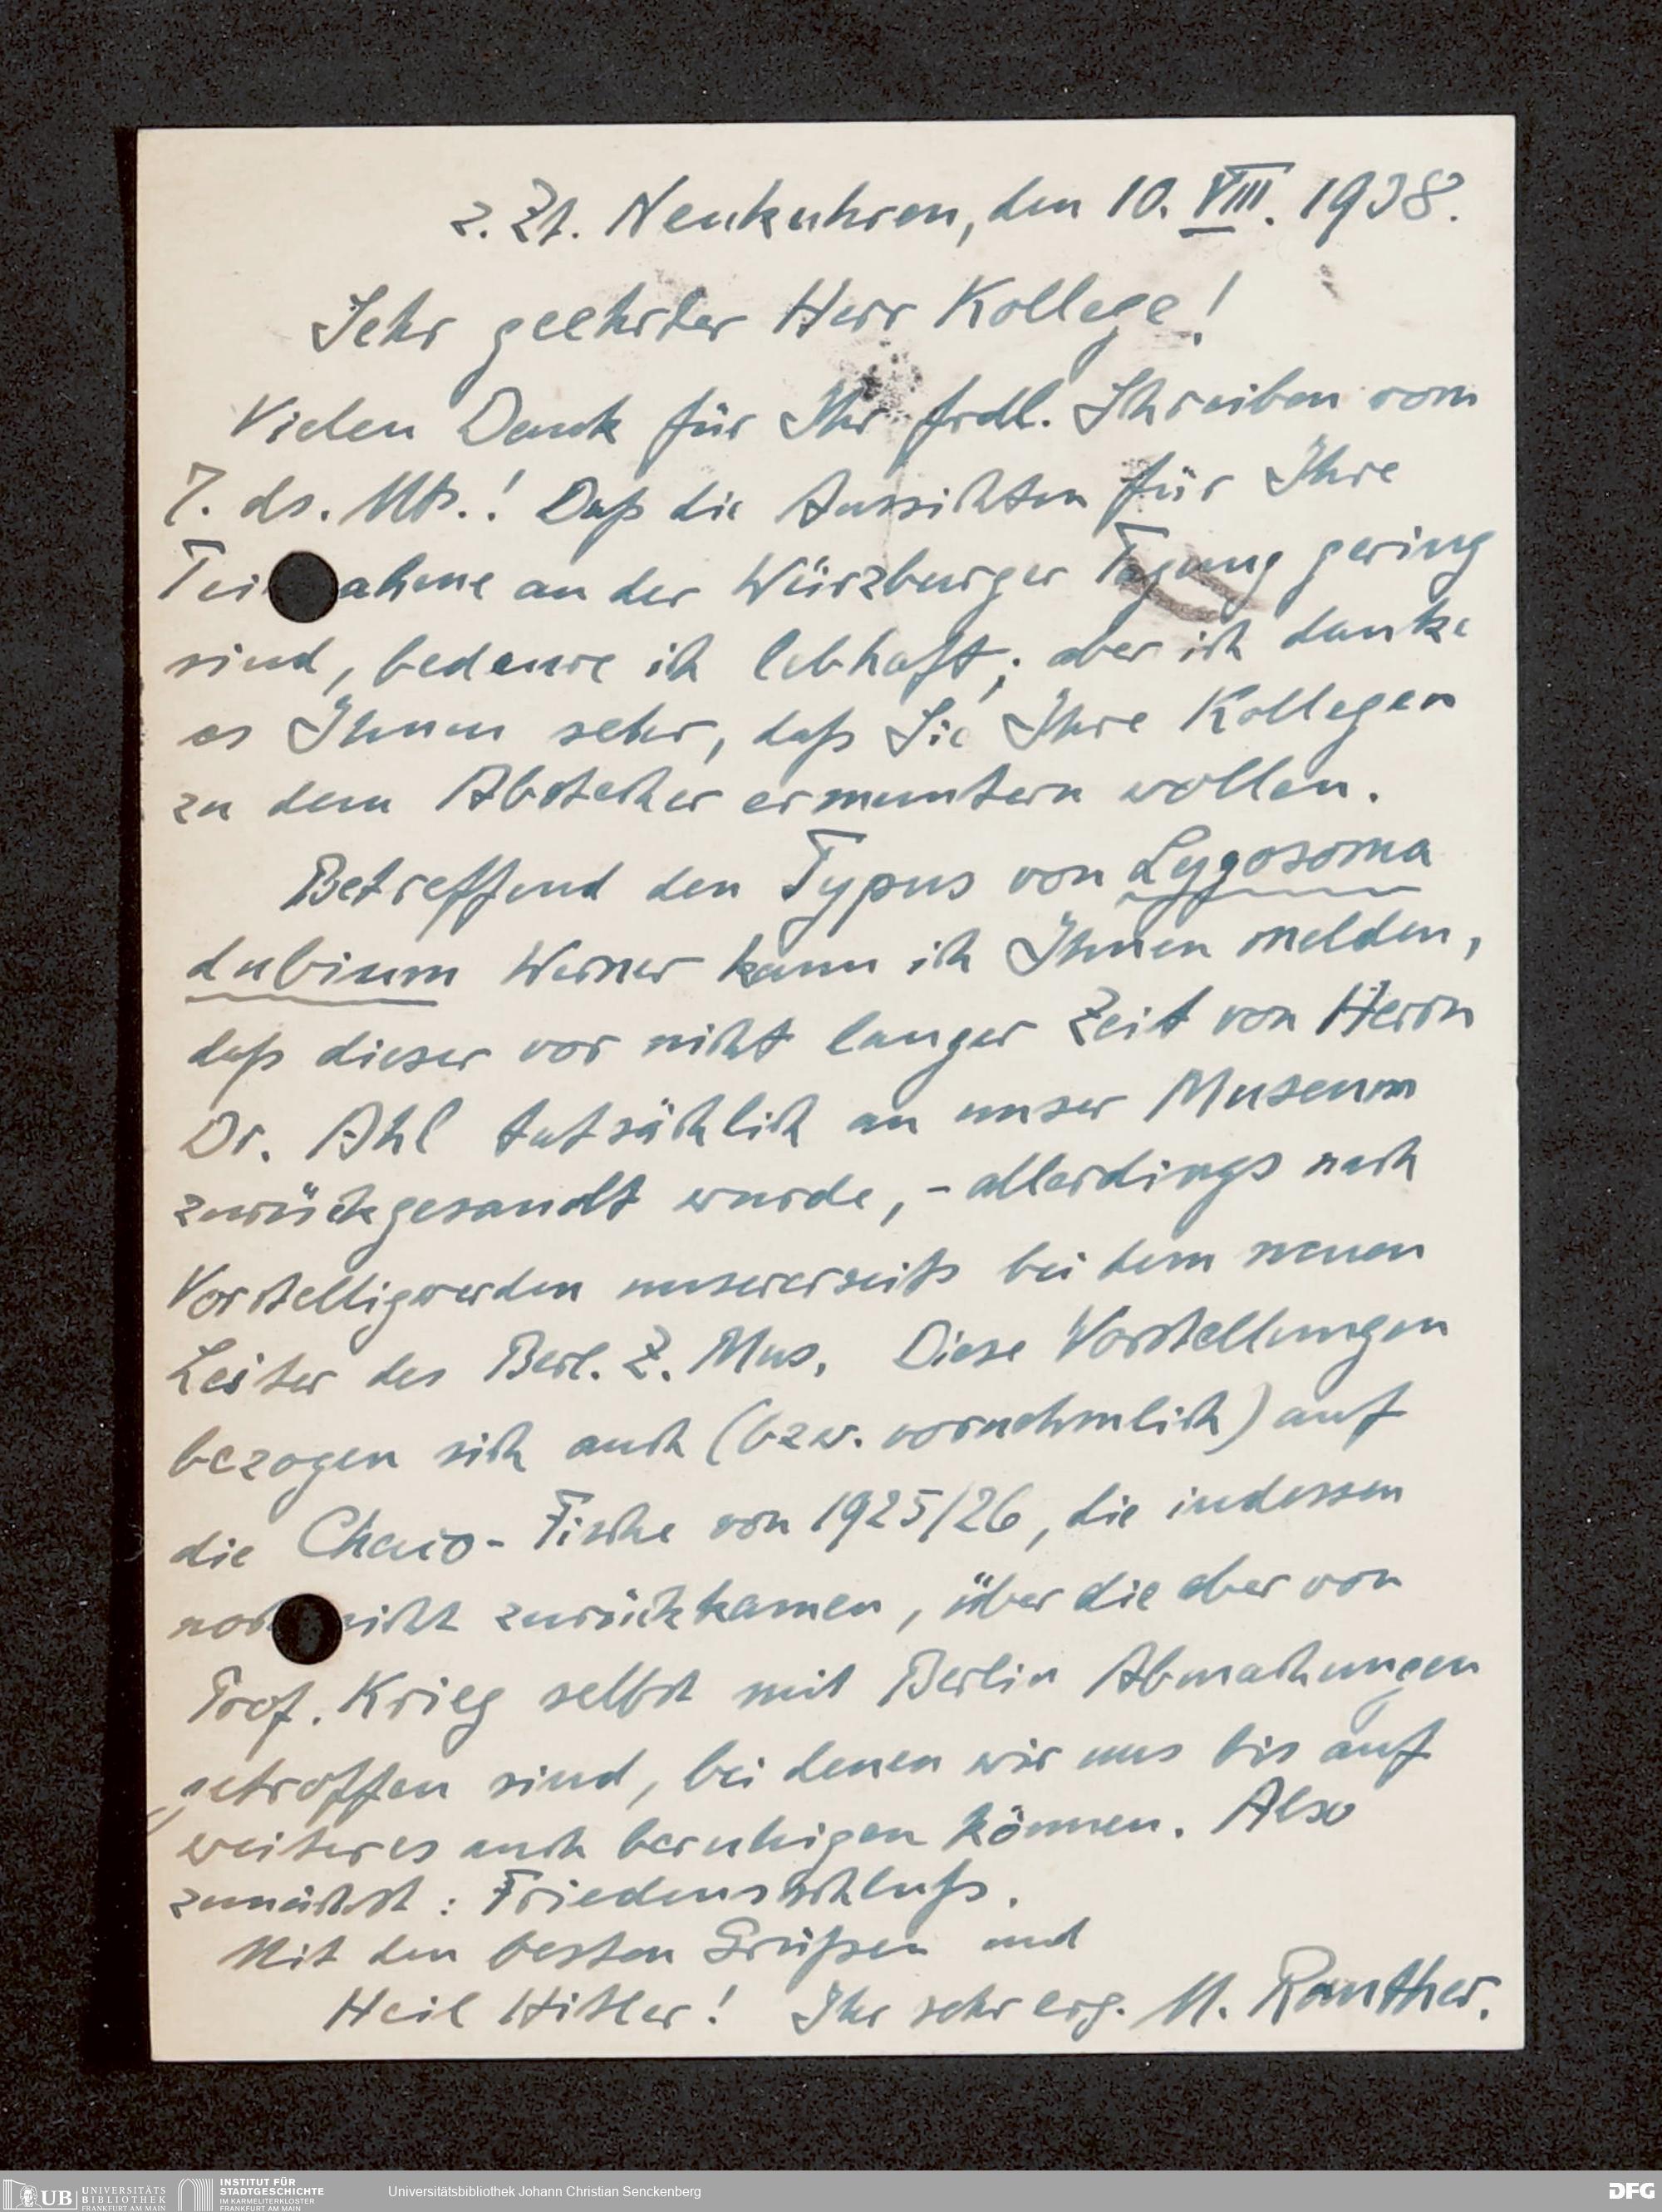 z. Zt. Neukuhren, den 10. VIII. 1938.
Sehr geehrter Herr Kollege!
Vielen Dank für Ihr frdl. Schreiben vom
7. ds. Mts.! Daß die Aussichten für Ihre
Teilnahme an der Würzburger Tagung gering
sind, bedaure ich lebhaft; aber ich danke
es Ihnen sehr, daß Sie Ihre Kollegen
zu dem Abstecher ermuntern wollen.
Betreffend den Typus von Lygosoma
dubium Werner kann ich Ihnen melden,
daß dieser vor nicht langer Zeit von Herrn
Dr. Ahl tatsächlich an unser Museum
zurückgesandt wurde, - allerdings nach
Vorstelligwerden unsererseits bei dem neuen
Leiter des Berl. Z. Mus. Diese Vorstellungen
bezogen sich auch (bzw. vornehmlich) auf
die Chaco-Fische von 1925/26, die indessen
noch nicht zurückkamen, über die aber von
Prof. Krieg selbst mit Berlin Abmachungen
getroffen sind, bei denen wir uns bis auf
weiteres auch beruhigen können. Also
zunächst: Friedensschluß.
Mit den besten Grüßen und
Heil Hitler! Ihr sehr erg. M. Rauther.
UB UNIVERSITÄTS
BIBLIOTHEK
FRANKFURT AM MAIN
INSTITUT FÜR
STADTGESCHICHTE
IM KARMELITERKLOSTER
FRANKFURT AM MAIN
Universitätsbibliothek Johann Christian Senckenberg
DFG